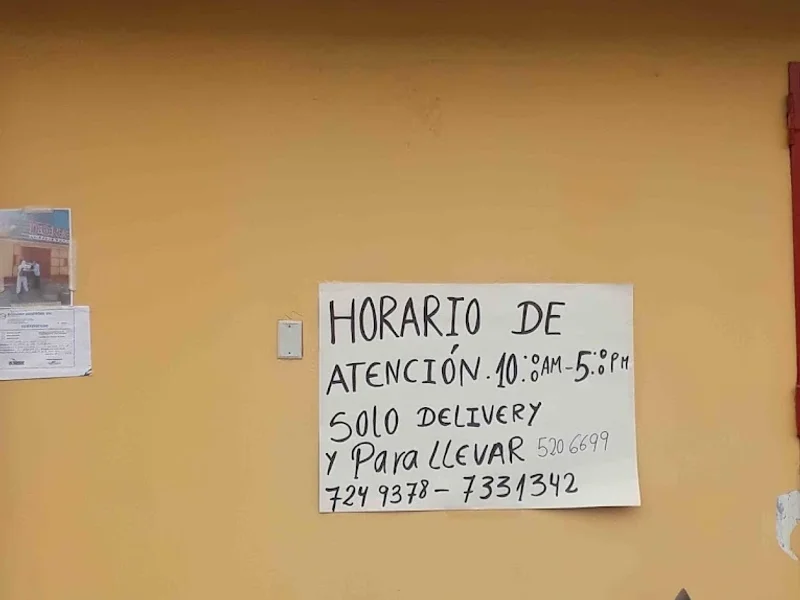 HORARIO DE
ATENCIÓN. 10:00 AM - 5:00 PM
SOLO DELIVERY
Y Para LLEVAR 520 6699
724 9378 - 7331342